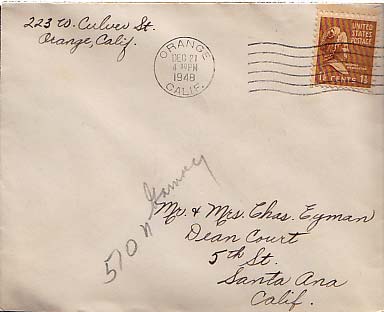 223 W. Culver St.
Orange, Calif.
ORANGE
DEC 21
4 PM
1948
CALIF.
UNITED STATES POSTAGE
1½ CENTS 1½
510 N
Mr. & Mrs. Chas. Eyman
Dean Court
5th St.
Santa Ana
Calif.